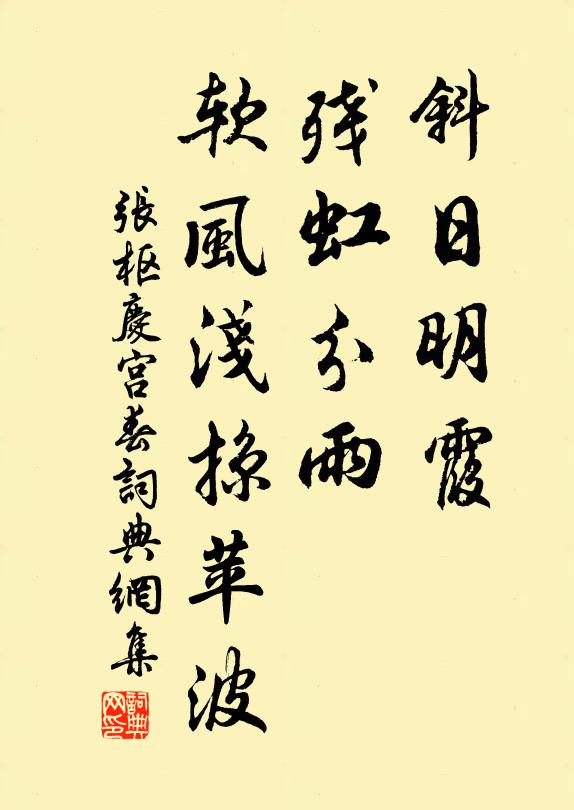 斜日明霞
残虹分雨
软風淺掠苹波
張枢慶宫春詞典網集
詞典网印